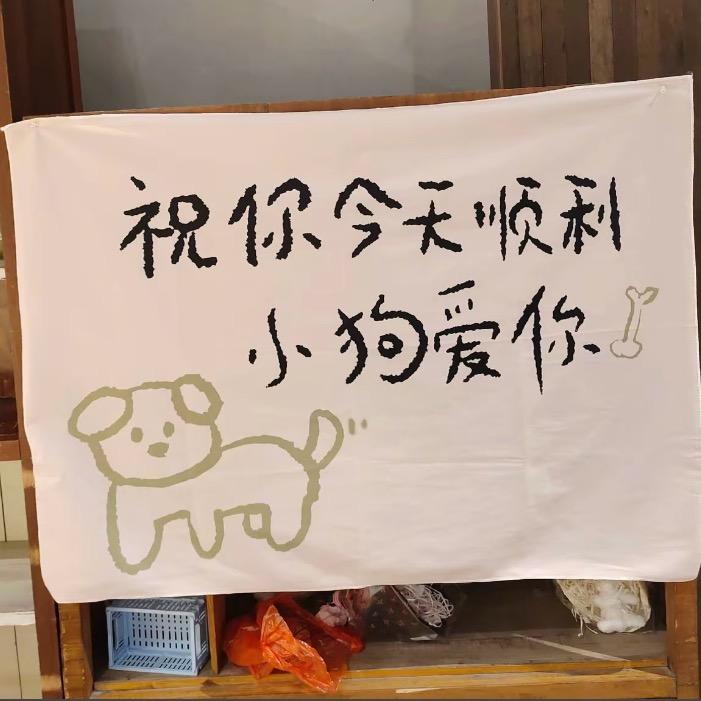 祝你今天顺利
小狗爱你